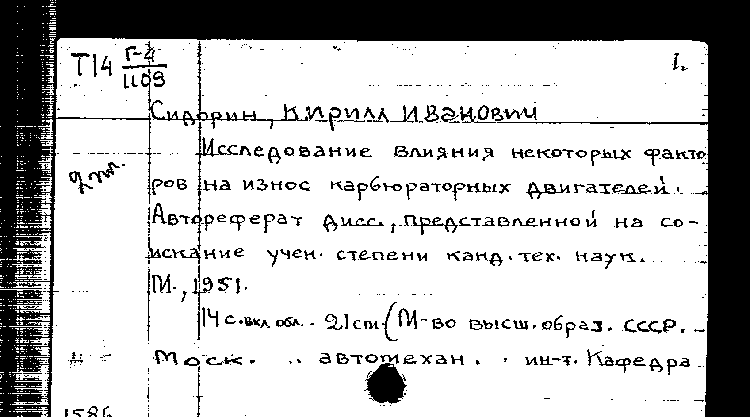 Т14 Г-4
1109
I.
Сидорин, Кирилл Иванович
Исследование влияния некоторых факто
ров на износ карбюраторных двигателей.
Автореферат дисс., представленной на со-
искание учен. степени канд. тех. наук.
М., 1951.
14 с. вкл. обл. 21 cm (М-во высш. образ. СССР.
Моск. автомехан. ин-т. Кафедра
1586